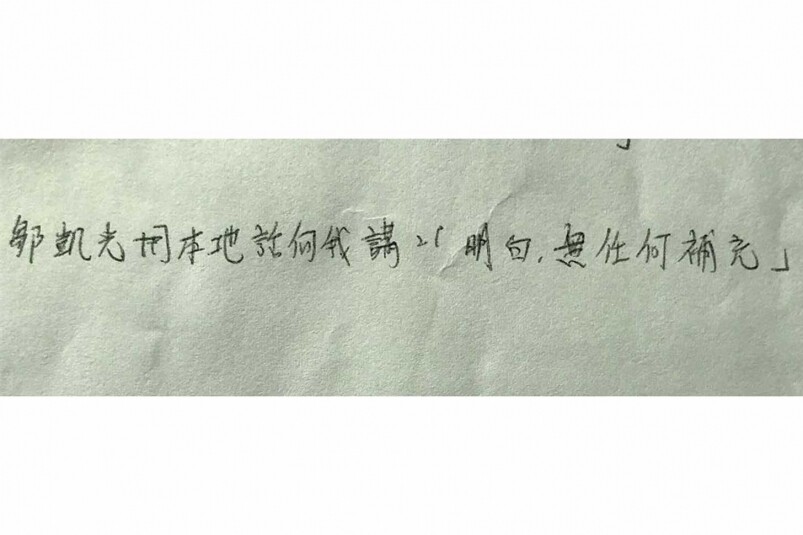 鄒凱光用本地話向我講:「明白,無任何補充」